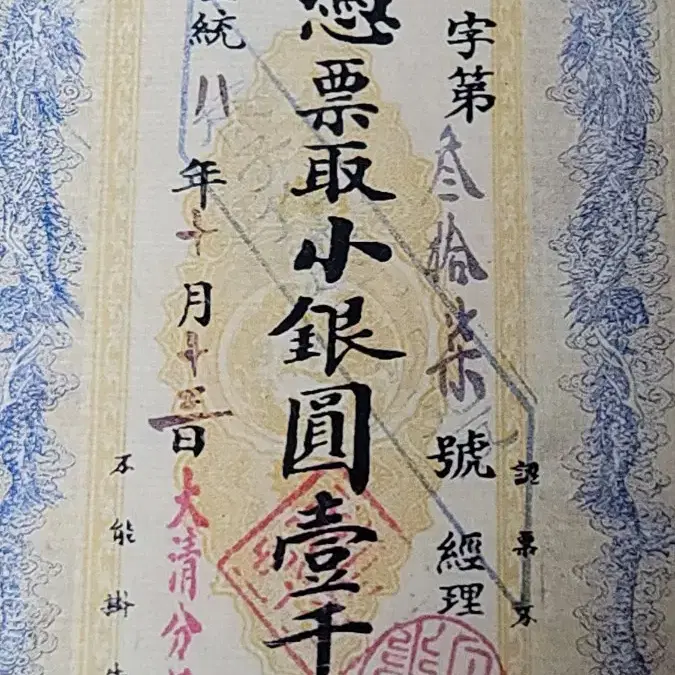 認票不
字第叁拾柒號 經理
憑票取小銀圓壹千
統八年十月十三日
大清分
不能掛